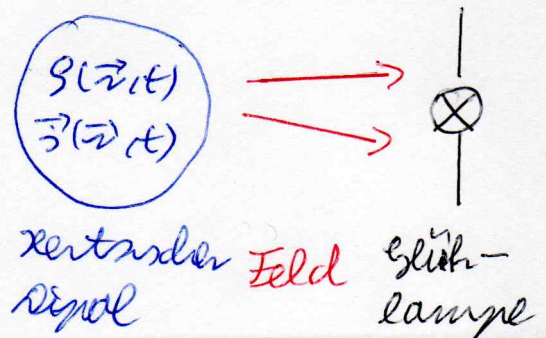 ρ(r⃗,t)
j⃗(r⃗,t)
Hertzscher
Dipol
Feld
Glüh-
lampe